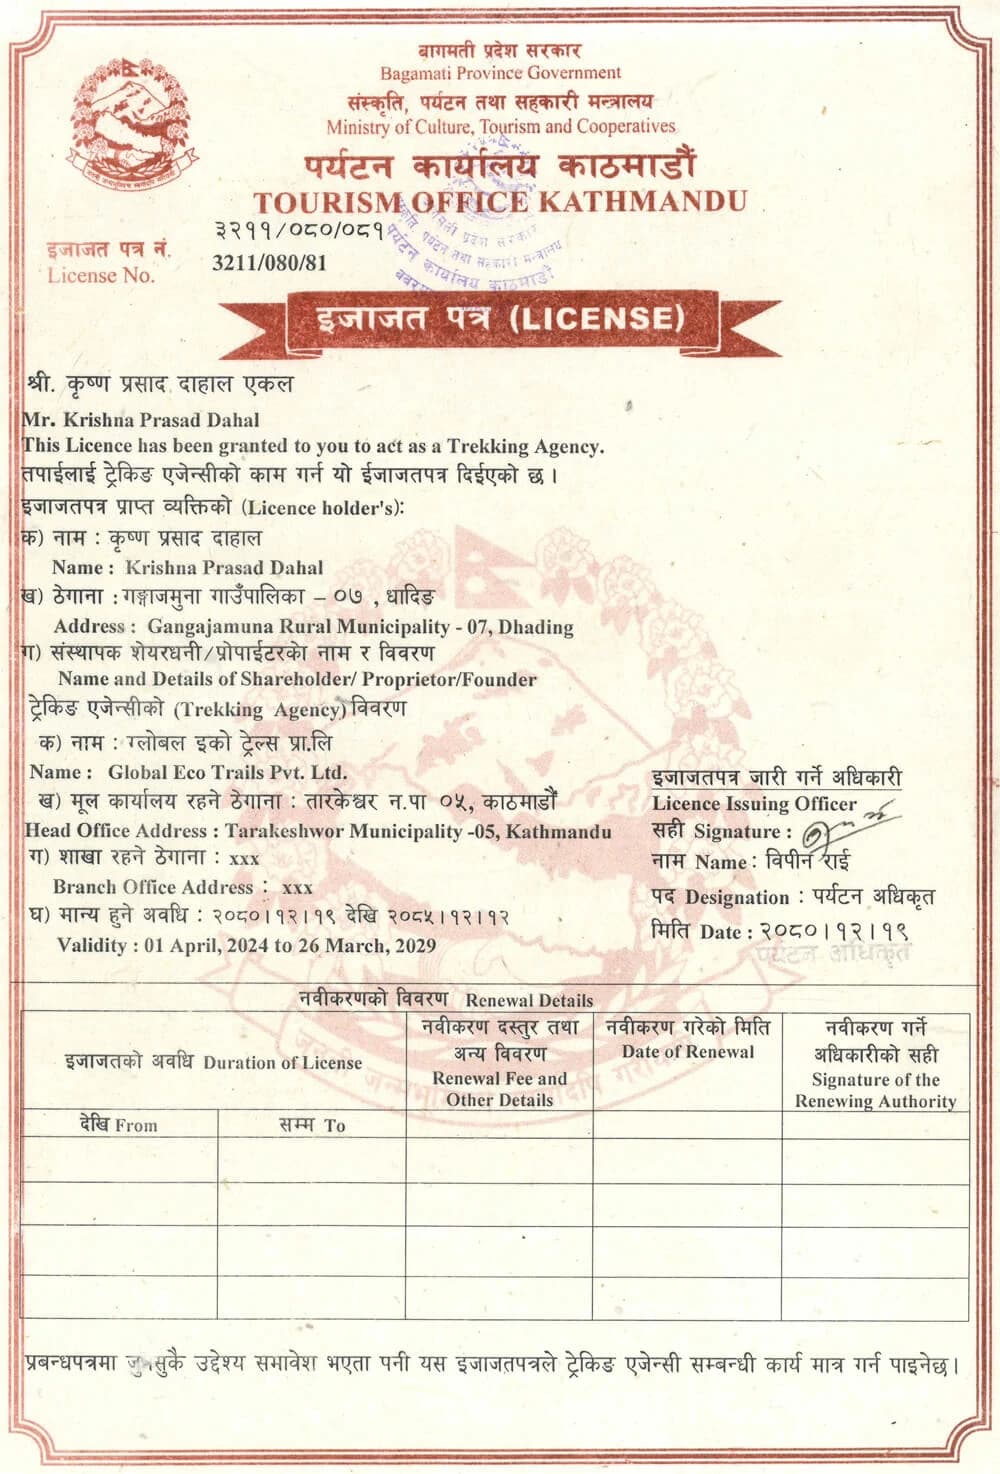 बागमती प्रदेश सरकार
Bagamati Province Government
संस्कृति, पर्यटन तथा सहकारी मन्त्रालय
Ministry of Culture, Tourism and Cooperatives
पर्यटन कार्यालय काठमाडौं
TOURISM OFFICE KATHMANDU
इजाजत पत्र नं. ३२११/०८०/०८१
License No. 3211/080/81
इजाजत पत्र (LICENSE)
श्री. कृष्ण प्रसाद दाहाल एकल
Mr. Krishna Prasad Dahal
This Licence has been granted to you to act as a Trekking Agency.
तपाईलाई ट्रेकिङ एजेन्सीको काम गर्न यो ईजाजतपत्र दिईएको छ ।
इजाजतपत्र प्राप्त व्यक्तिको (Licence holder's):
क) नाम : कृष्ण प्रसाद दाहाल
Name : Krishna Prasad Dahal
ख) ठेगाना : गङ्गाजमुना गाउँपालिका – ०७ , धादिङ
Address : Gangajamuna Rural Municipality - 07, Dhading
ग) संस्थापक शेयरधनी/प्रोपाईटरको नाम र विवरण
Name and Details of Shareholder/ Proprietor/Founder
ट्रेकिङ एजेन्सीको (Trekking Agency) विवरण
क) नाम : ग्लोबल इको ट्रेल्स प्रा.लि
Name : Global Eco Trails Pvt. Ltd.
ख) मूल कार्यालय रहने ठेगाना : तारकेश्वर न.पा ०५, काठमाडौं
Head Office Address : Tarakeshwor Municipality -05, Kathmandu
ग) शाखा रहने ठेगाना : xxx
Branch Office Address : xxx
घ) मान्य हुने अवधि : २०८०।१२।१९ देखि २०८५।१२।१२
Validity : 01 April, 2024 to 26 March, 2029
इजाजतपत्र जारी गर्ने अधिकारी
Licence Issuing Officer
सही Signature :
नाम Name : विपीन राई
पद Designation : पर्यटन अधिकृत
मिति Date : २०८०।१२।१९
पर्यटन अधिकृत
नवीकरणको विवरण Renewal Details
इजाजतको अवधि Duration of License
नवीकरण दस्तुर तथा
अन्य विवरण
Renewal Fee and
Other Details
नवीकरण गरेको मिति
Date of Renewal
नवीकरण गर्ने
अधिकारीको सही
Signature of the
Renewing Authority
देखि From
सम्म To
प्रबन्धपत्रमा जुनसुकै उद्देश्य समावेश भएता पनी यस इजाजतपत्रले ट्रेकिङ एजेन्सी सम्बन्धी कार्य मात्र गर्न पाइनेछ।